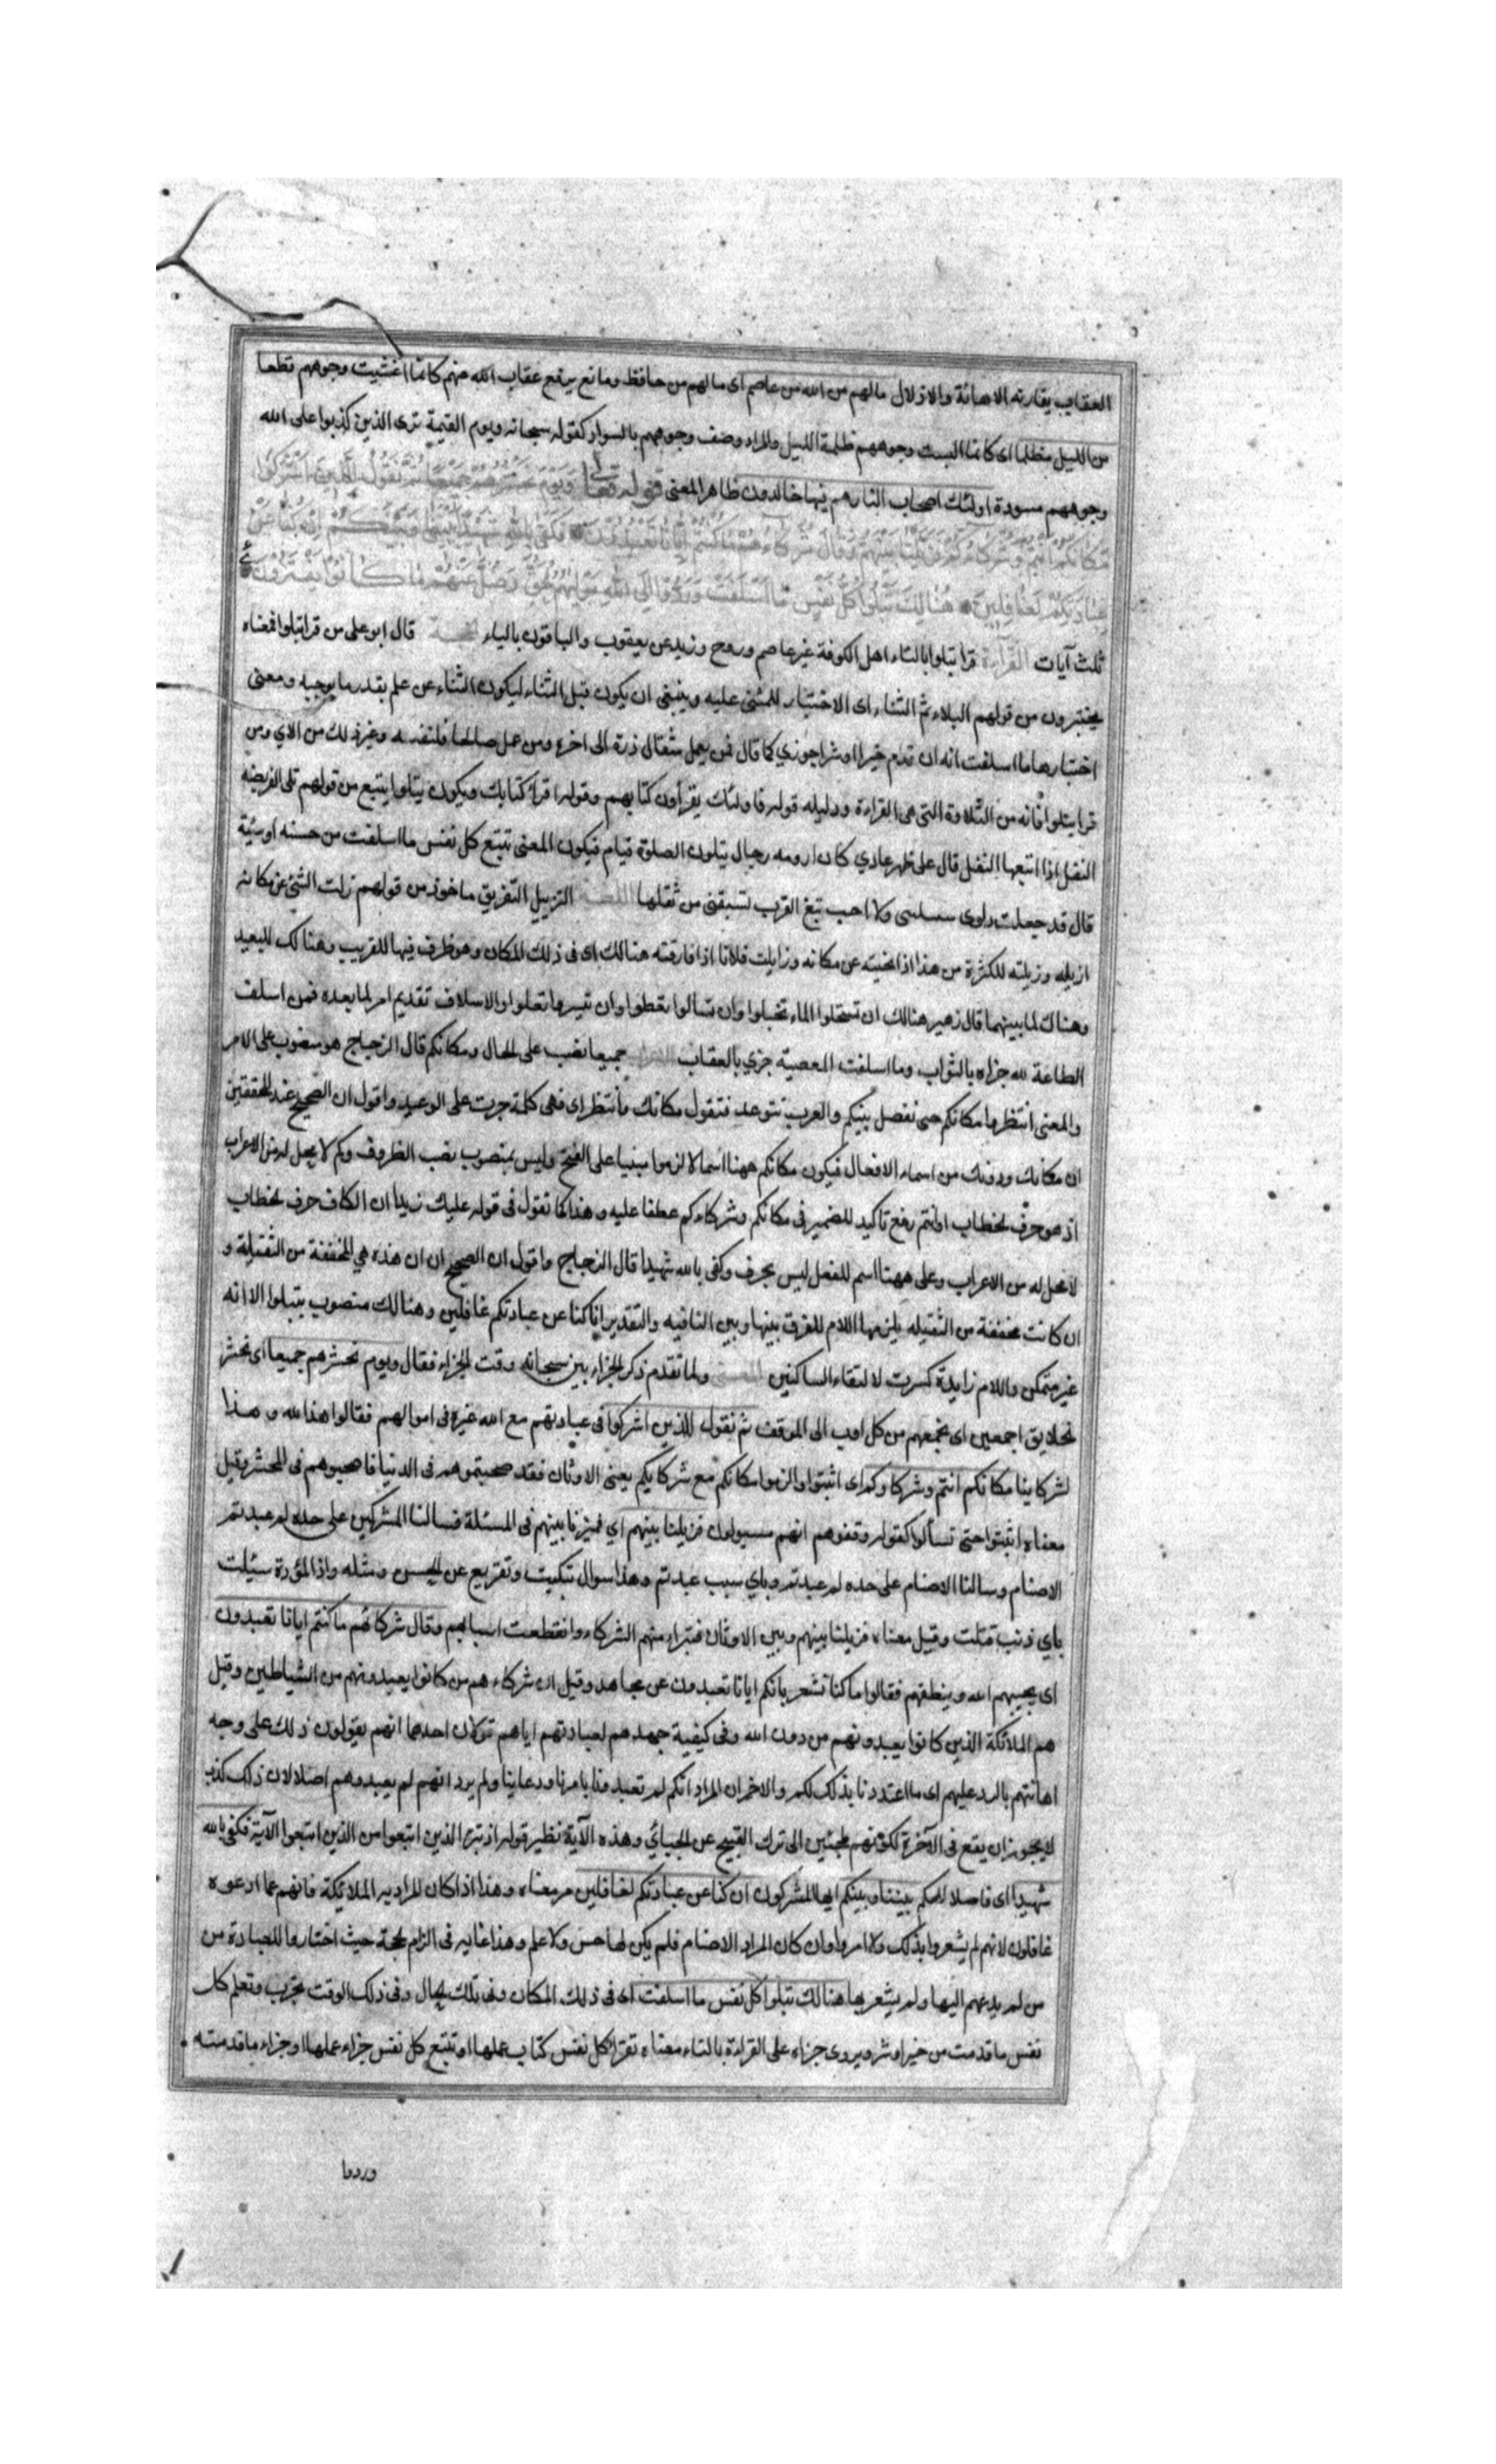 العقاب يقارنه الاهانة والاذلال مالهم من الله من عاصم اى مالهم من حافظ ومانع يدفع عقاب الله عنهم كانما اغشيت وجوههم قطعا
من الليل مظلما اى كانما البست وجوههم ظلمة الليل والمراد وصف وجوههم بالسواد كقوله سبحانه ويوم القيمة ترى الذين كذبوا على الله
وجوههم مسودة اولئك اصحاب النار هم فيها خالدون ظاهر المعنى قوله تعالى ويوم نحشرهم جميعا ثم نقول للذين اشركوا
مكانكم انتم وشركاءكم فزيلنا بينهم وقال شركاءهم ما كنتم ايانا تعبدون فكفى بالله شهيدا بيننا وبينكم ان كنا عن
عبادتكم لغافلين هنالك تبلوا كل نفس ما اسلفت وردوا الى الله موليهم الحق وضل عنهم ما كانوا يفترون
ثلث آيات القراءة قرا تبلوا بالتاء اهل الكوفة غير عاصم وروح وزيد عن يعقوب والباقون بالياء الحجة قال ابو على من قرا تبلوا فمعناه
يختبرون من قولهم البلاء ثم الثناء اى الاختبار للمثنى عليه وينبغى ان يكون قبل الثناء ليكون الثناء عن علم بقدر ما يوجبه ومعنى
اختبارها ما اسلفت انه ان قدم خيرا او شرا جوزي كما قال فمن يعمل مثقال ذرة الى اخره ومن عمل صالحا فلنفسه وغير ذلك من الاي ومن
قرا يتلوا فانه من التلاوة التى هى القراءة ودليله قوله فاولئك يقرأون كتابهم وقوله اقرأ كتابك ويكون يتلوا يتبع من قولهم تلى الفريضه
النفل اذا اتبعها النفل قال على ظهر عادي كان ارومه رجال يتلون الصلوة قيام فيكون المعنى تتبع كل نفس ما اسلفت من حسنه او سيئة
قال قد جعلت دلوى ولا احب تبع القرب تسبقنى من ثقلها اللغة التزييل التفريق ماخوذ من قولهم زلت الشئ عن مكانه
ازيله وزيلته للكثرة من هذا اذا نحيته عن مكانه وزايلت فلانا اذا فارقته هنالك اى فى ذلك المكان وهو ظرف فيها للقريب وهنالك للبعيد
وهناك لما بينهما قال زهير هنالك ان وان تسألوا يعطوا وان تيسرها تعلوا والاسلاف تقديم امر لما بعده فمن اسلف
الطاعة لله جزاه بالثواب وما اسلفت المعصية جزي بالعقاب الاعراب جميعا نصب على الحال ومكانكم قال الزجاج هو منصوب على الامر
والمعنى انتظروا مكانكم حتى نفصل بينكم والعرب تتوعد فتقول مكانك وأنتظر اى فهى كلمة جرت على الوعيد واقول ان الصحيح عند المحققين
ان مكانك ودونك من اسماء الافعال فيكون مكانكم ههنا اسما لالزموا مبنيا على الفتح وليس بمنصوب نصب الظروف وكم لا محل له من الاعراب
اذ هو حرف لخطاب انتم رفع تاكيد للضمير فى مكانكم وشركاءكم عطفا عليه وهذا كما نقول فى قوله عليك زيدا ان الكاف حرف لخطاب
لا محل له من الاعراب وعلى ههنا اسم للفعل ليس بحرف وكفى بالله شهيدا قال الزجاج واقول ان الصحيح ان ان هذه هي المخففة من الثقيلة و
ان كانت مخففة من الثقيله يلزمها اللام للفرق بينها وبين النافيه والتقدير انا كنا عن عبادتكم غافلين وهنالك منصوب بتبلوا الا انه
غير متمكن واللام زايدة كسرت لالتقاء الساكنين المعنى ولما تقدم ذكر الجزاء بين سبحانه وقت الجزاء فقال ويوم نحشرهم جميعا اى نحشر
لخلايق اجمعين اى نجمعهم من كل اوب الى الموقف ثم نقول للذين اشركوا فى عبادتهم مع الله غيره فى اموالهم فقالوا هذا لله وهذا
لشركاينا مكانكم انتم وشركاوكم اى اثبتوا والزموا مكانكم مع شركايكم يعنى الاوثان فقد صحبتموهم فى الدنيا فاصحبوهم فى المحشر وقيل
معناه اثبتوا حتى تسألوا كقوله وقفوهم انهم مسيولون فزيلنا بينهم اي فميزنا بينهم فى المسئلة فسالنا المشركين على حده لم عبدتم
الاصنام وسالنا الاصنام على حده لم عبدتم وباي سبب عبدتم وهذا سوال تبكيت وتقريع عن الحسن ومثله واذا المؤدة سئلت
باي ذنب قتلت وقيل معناه فزيلنا بينهم وبين الاوثان فتبرا منهم الشركاء وانقطعت اسبابهم وقال شركاؤهم ما كنتم ايانا تعبدون
اى يحييهم الله وينطقهم فقالوا ما كنا نشعر بانكم ايانا تعبدون عن مجاهد وقيل ان شركاءهم من كانوا يعبدونهم من الشياطين وقيل
هم الملائكة الذين كانوا يعبدونهم من دون الله وفى كيفية جحدهم لعبادتهم اياهم قولان احدهما انهم يقولون ذلك على وجه
اهانتهم بالرد عليهم اى ما اعتددنا بذلك لكم والاخر ان المراد انكم لم تعبدونا بامرنا ودعاينا ولم يرد انهم لم يعبدوهم اصلا لان ذلك كذب
لا يجوز ان يقع فى الآخرة لكونهم ملجئين الى ترك القبيح عن الجبائي وهذه الآية نظير قوله اذ تبرا الذين اتبعوا من الذين اتبعوا الآية فكفى بالله
شهيدا اى فاصلا للحكم بيننا وبينكم ايها المشركون ان كنا عن عبادتكم لغافلين مر معناه وهذا اذا كان المراد به الملائكة فانهم عما ادعوه
غافلون لانهم لم يشعروا بذلك ولا امروا وان كان المراد الاصنام فلم يكن لها حس ولا علم وهذا غايه فى الزام لحجة حيث اختاروا للعبادة من
من لم يدعهم اليها ولم يشعر بها هنالك تبلوا كل نفس ما اسلفت اى فى ذلك المكان وفى تلك الحال وفى ذلك الوقت تجرب وتعلم كل
نفس ما قدمت من خير او شر ويروى جزاه على القراءة بالتاء معناه تقرأ كل نفس كتاب عملها او تتبع كل نفس جزاء عملها او جزاء ما قدمته
وردوا